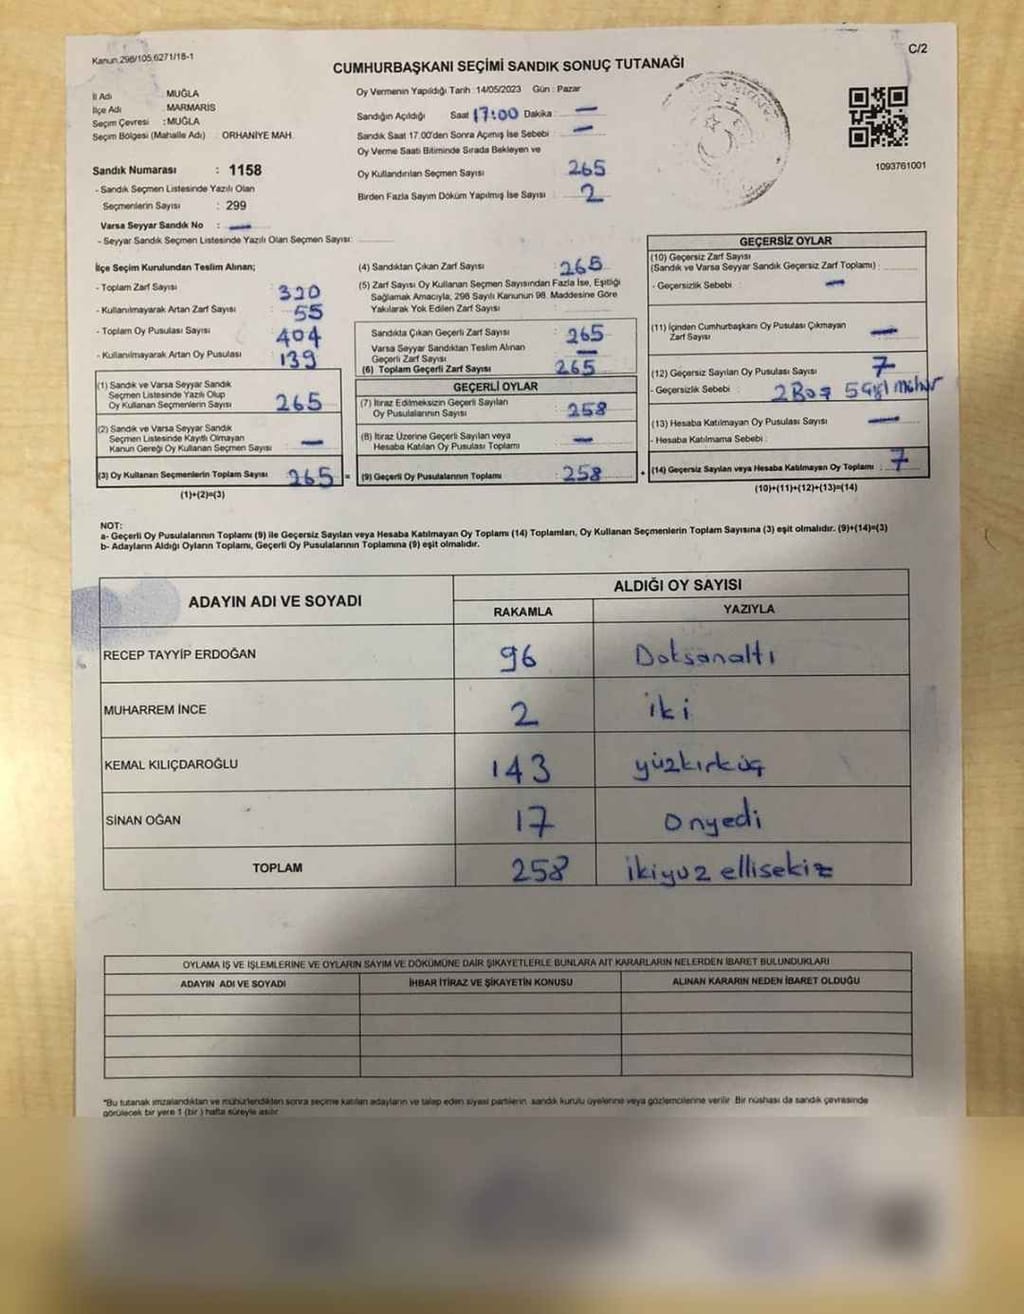 Kanun 298/105,6271/18-1
C/2
CUMHURBAŞKANI SEÇİMİ SANDIK SONUÇ TUTANAĞI
İl Adı : MUĞLA
İlçe Adı : MARMARİS
Seçim Çevresi : MUĞLA
Seçim Bölgesi (Mahalle Adı) : ORHANİYE MAH.
Sandık Numarası : 1158
- Sandık Seçmen Listesinde Yazılı Olan
Seçmenlerin Sayısı : 299
Varsa Seyyar Sandık No : —
- Seyyar Sandık Seçmen Listesinde Yazılı Olan Seçmen Sayısı:
Oy Vermenin Yapıldığı Tarih : 14/05/2023 Gün : Pazar
Sandığın Açıldığı Saat 17:00 Dakika : —
Sandık Saat 17.00'den Sonra Açımış İse Sebebi : —
Oy Verme Saati Bitiminde Sırada Bekleyen ve
Oy Kullandırılan Seçmen Sayısı : 265
Birden Fazla Sayım Döküm Yapılmış İse Sayısı : 2
1093761001
İlçe Seçim Kurulundan Teslim Alınan;
- Toplam Zarf Sayısı : 320
- Kullanılmayarak Artan Zarf Sayısı : 55
- Toplam Oy Pusulası Sayısı : 404
- Kullanılmayarak Artan Oy Pusulası : 139
(1) Sandık ve Varsa Seyyar Sandık
Seçmen Listesinde Yazılı Olup
Oy Kullanan Seçmenlerin Sayısı : 265
(2) Sandık ve Varsa Seyyar Sandık
Seçmen Listesinde Kayıtlı Olmayan
Kanun Gereği Oy Kullanan Seçmen Sayısı : —
(3) Oy Kullanan Seçmenlerin Toplam Sayısı : 265 =
(1)+(2)=(3)
(4) Sandıktan Çıkan Zarf Sayısı : 265
(5) Zarf Sayısı Oy Kullanan Seçmen Sayısından Fazla İse, Eşitliği
Sağlamak Amacıyla, 298 Sayılı Kanunun 98. Maddesine Göre
Yakılarak Yok Edilen Zarf Sayısı :
Sandıkta Çıkan Geçerli Zarf Sayısı : 265
Varsa Seyyar Sandıktan Teslim Alınan
Geçerli Zarf Sayısı : —
(6) Toplam Geçerli Zarf Sayısı : 265
GEÇERLİ OYLAR
(7) İtiraz Edilmeksizin Geçerli Sayılan
Oy Pusulalarının Sayısı : 258
(8) İtiraz Üzerine Geçerli Sayılan veya
Hesaba Katılan Oy Pusulası Toplamı : —
(9) Geçerli Oy Pusulalarının Toplamı : 258 +
GEÇERSİZ OYLAR
(10) Geçersiz Zarf Sayısı
(Sandık ve Varsa Seyyar Sandık Geçersiz Zarf Toplamı) :
- Geçersizlik Sebebi : —
(11) İçinden Cumhurbaşkanı Oy Pusulası Çıkmayan
Zarf Sayısı : —
(12) Geçersiz Sayılan Oy Pusulası Sayısı : 7
- Geçersizlik Sebebi : 2 Boş
(13) Hesaba Katılmayan Oy Pusulası Sayısı : —
- Hesaba Katılmama Sebebi :
(14) Geçersiz Sayılan veya Hesaba Katılmayan Oy Toplamı : 7
(10)+(11)+(12)+(13)=(14)
NOT:
a- Geçerli Oy Pusulalarının Toplamı (9) ile Geçersiz Sayılan veya Hesaba Katılmayan Oy Toplamı (14) Toplamları, Oy Kullanan Seçmenlerin Toplam Sayısına (3) eşit olmalıdır. (9)+(14)=(3)
b- Adayların Aldığı Oyların Toplamı, Geçerli Oy Pusulalarının Toplamına (9) eşit olmalıdır.
ADAYIN ADI VE SOYADI
ALDIĞI OY SAYISI
RAKAMLA YAZIYLA
RECEP TAYYİP ERDOĞAN 96 Doksanaltı
MUHARREM İNCE 2 iki
KEMAL KILIÇDAROĞLU 143 yüzkırküç
SİNAN OĞAN 17 onyedi
TOPLAM 258 ikiyuz ellisekiz
OYLAMA İŞ VE İŞLEMLERİNE VE OYLARIN SAYIM VE DÖKÜMÜNE DAİR ŞİKAYETLERLE BUNLARA AİT KARARLARIN NELERDEN İBARET BULUNDUKLARI
ADAYIN ADI VE SOYADI İHBAR İTİRAZ VE ŞİKAYETİN KONUSU ALINAN KARARIN NEDEN İBARET OLDUĞU
*Bu tutanak imzalandıktan ve mühürlendikten sonra seçime katılan adayların ve talep eden siyasi partilerin sandık kurulu üyelerine veya gözlemcilerine verilir. Bir nüshası da sandık çevresinde
görülecek bir yere 1 (bir) hafta süreyle asılır.